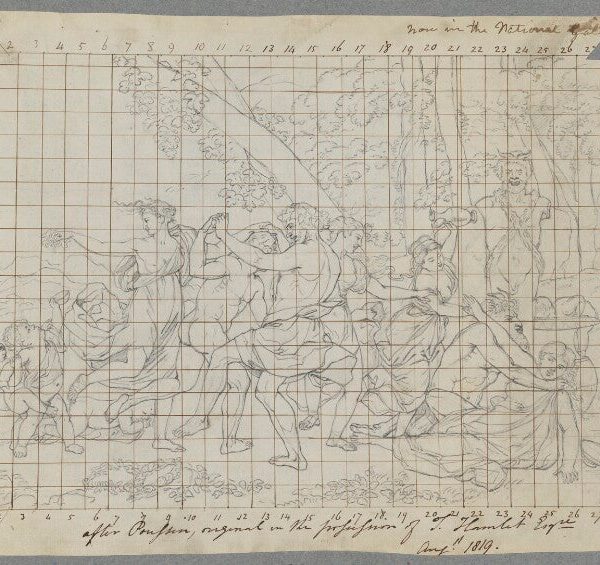 now in the National Gal
2 3 4 5 6 7 8 9 10 11 12 13 14 15 16 17 18 19 20 21 22 23 24 25 26 27
3 4 5 6 7 8 9 10 11 12 13 14 15 16 17 18 19 20 21 22 23 24 25 26 2
after Poussin, original in the possession of T. Hamlet Esqre
Augst 1819.